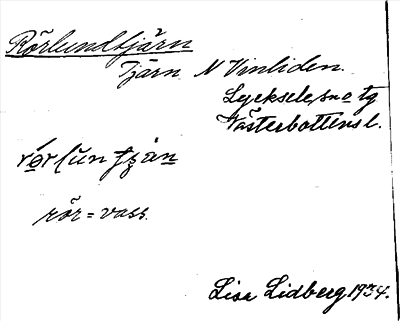 Rörlundtjärn
Tjärn N Vinliden.
Lycksele sn o tg
Västerbottens l.
rör = vass.
Lisa Lidberg 1934.